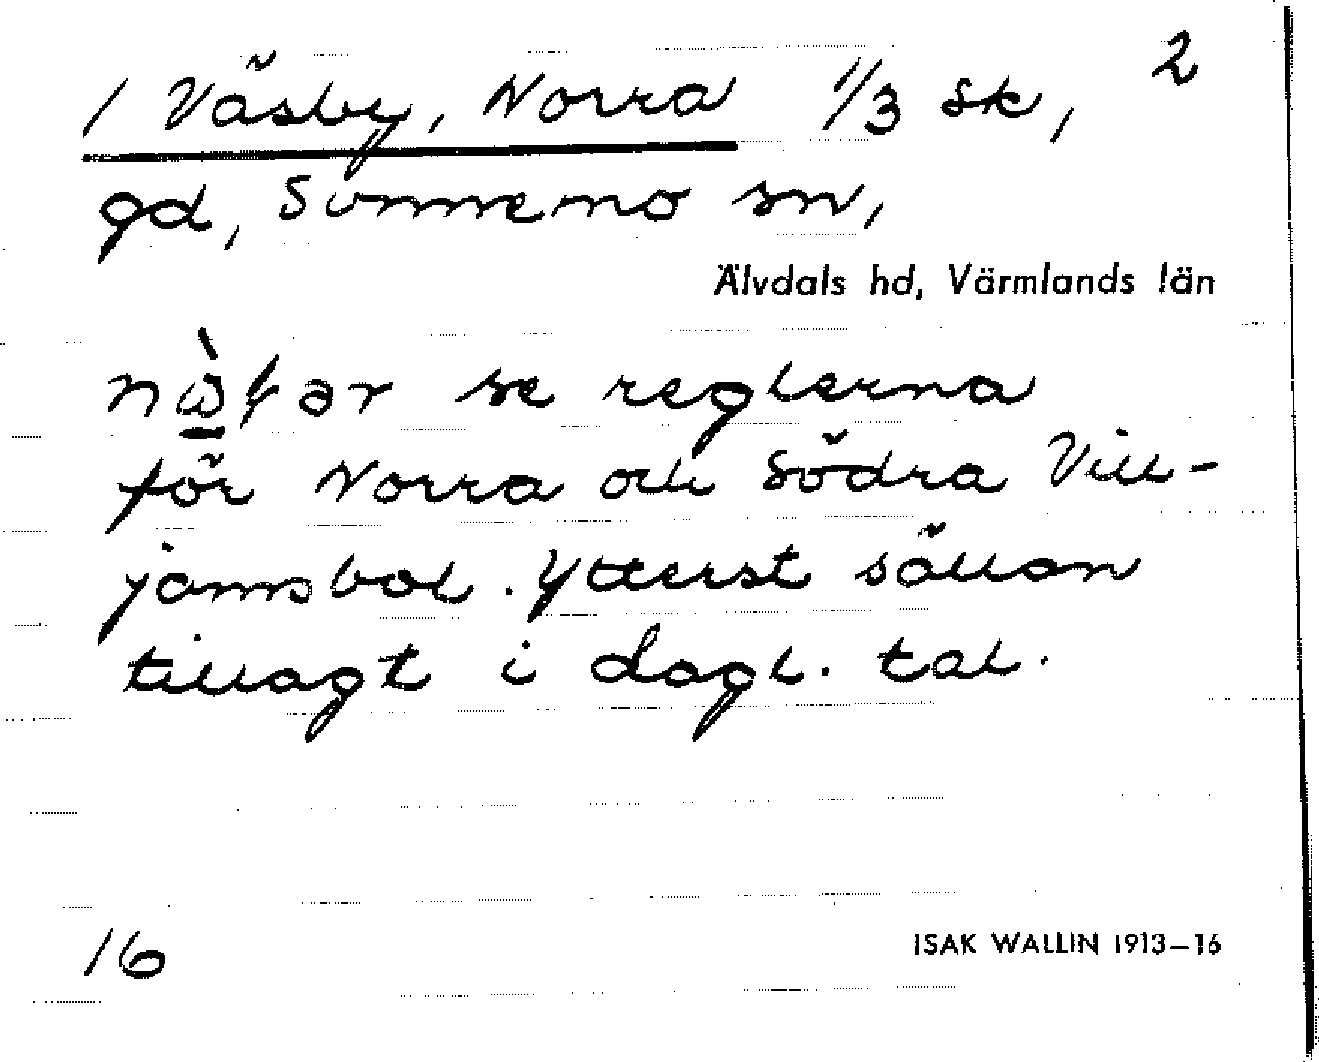 1 Väsby, Norra 1/3 sk, 2
gd, Sunnemo sn,
Älvdals hd, Värmlands län
se reglerna
för Norra och Södra Vill-
jamsbol. Ytterst sällan
tillagt i dagl. tal.
16 ISAK WALLIN 1913–16